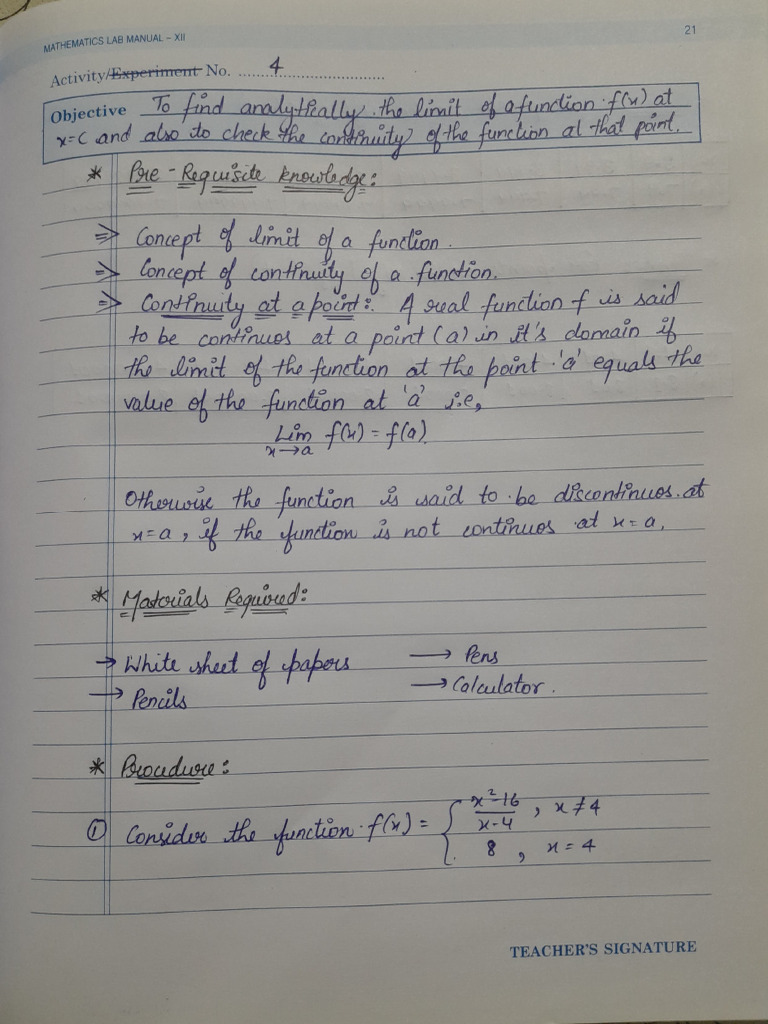 MATHEMATICS LAB MANUAL – XII
21
Activity/Experiment No. ....4....
Objective To find analytically the limit of a function f(x) at
x=c and also to check the continuity of the function at that point.
* Pre-Requisite knowledge:
⇒ Concept of limit of a function.
⇒ Concept of continuity of a function.
⇒ Continuity at a point: A real function f is said
to be continues at a point (a) in it's domain if
the limit of the function at the point 'a' equals the
value of the function at 'a' i.e,
Lim f(x) = f(a)
x→a
Otherwise the function is said to be discontinues at
x=a, if the function is not continues at x=a.
* Materials Required:
→ White sheet of papers → Pens
→ Pencils → Calculator.
* Procedure:
① Consider the function f(x) = { x²-16/x-4, x≠4
8, x=4
TEACHER'S SIGNATURE